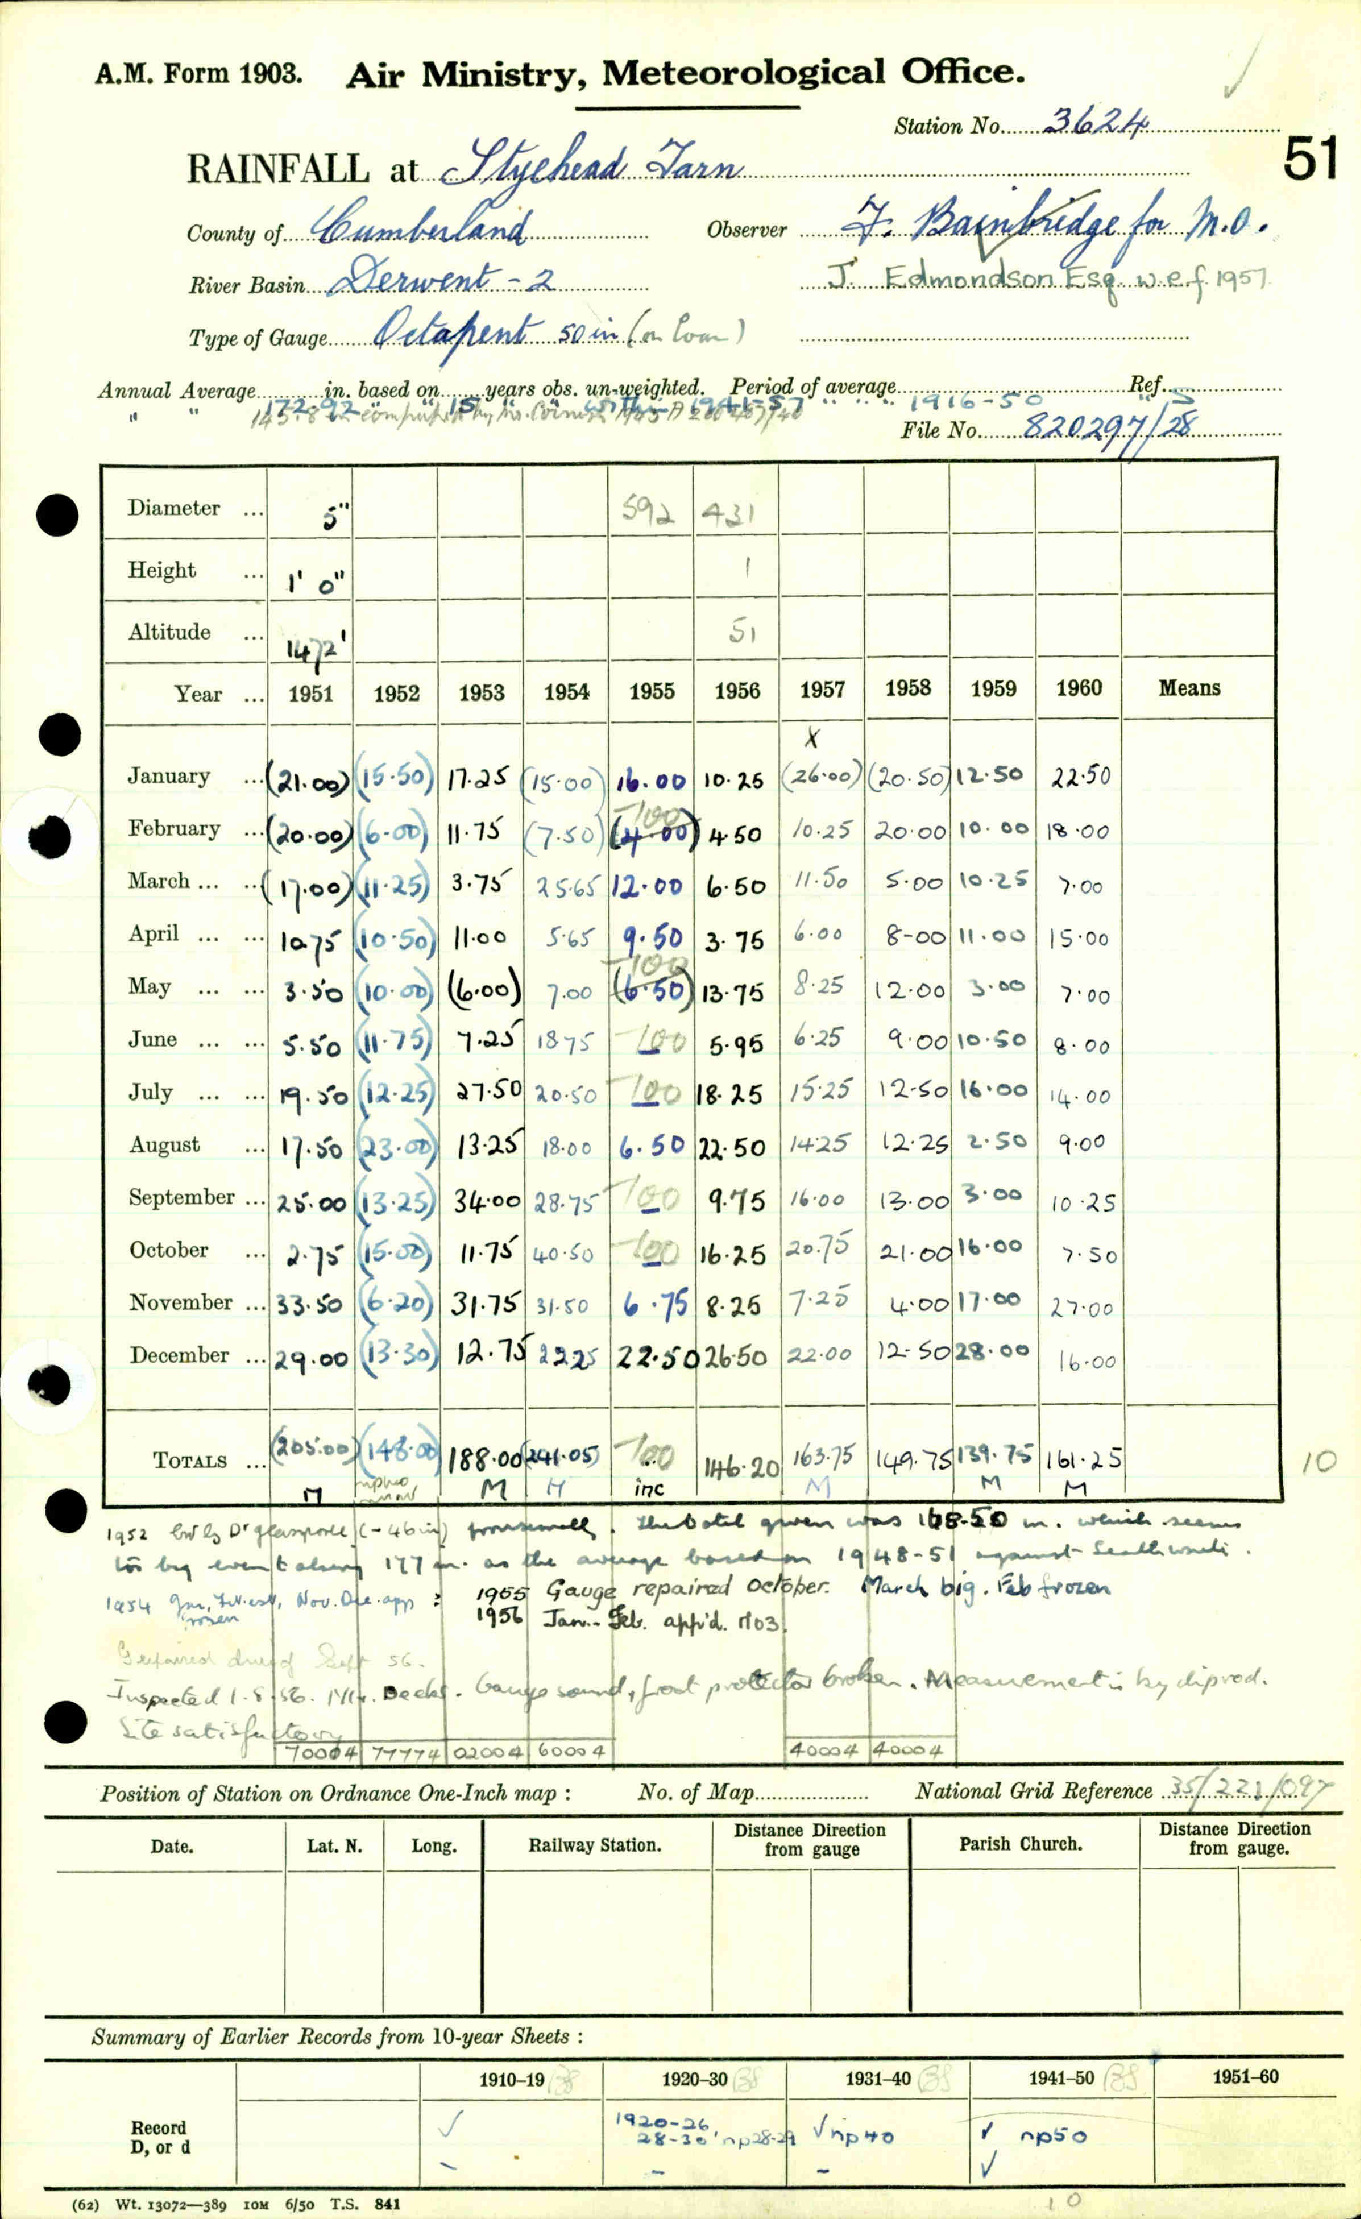 A.M. Form 1903. Air Ministry, Meteorological Office.
Station No. 3624
51
RAINFALL at Styehead Tarn
County of Cumberland Observer F. Bainbridge for M.O.
River Basin Derwent - 2 J. Edmondson Esq. w.e.f. 1957
Type of Gauge Octapent 50 in (on loan)
Annual Average in. based on years obs. un-weighted. Period of average Ref.
172.92 15 1941-57 1916-50 S
File No. 820297/28
Diameter ... 5" 592 431
Height ... 1' 0" 1
Altitude ... 1472' 51
Year ... 1951 1952 1953 1954 1955 1956 1957 1958 1959 1960 Means
X
January ... (21.00) (15.50) 17.25 (15.00) 16.00 10.25 (26.00) (20.50) 12.50 22.50
-100
February ... (20.00) (6.00) 11.75 (7.50) (4.00) 4.50 10.25 20.00 10.00 18.00
March ... ... (17.00) (11.25) 3.75 25.65 12.00 6.50 11.50 5.00 10.25 7.00
April ... ... 10.75 (10.50) 11.00 5.65 9.50 3.75 6.00 8-00 11.00 15.00
-100
May ... ... 3.50 (10.00) (6.00) 7.00 (6.50) 13.75 8.25 12.00 3.00 7.00
June ... ... 5.50 (11.75) 7.25 18.75 -100 5.95 6.25 9.00 10.50 8.00
July ... ... 19.50 (12.25) 27.50 20.50 -100 18.25 15.25 12.50 16.00 14.00
August ... 17.50 (23.00) 13.25 18.00 6.50 22.50 14.25 12.25 2.50 9.00
September ... 25.00 (13.25) 34.00 28.75 -100 9.75 16.00 13.00 3.00 10.25
October ... 2.75 (15.00) 11.75 40.50 -100 16.25 20.75 21.00 16.00 7.50
November ... 33.50 (6.20) 31.75 31.50 6.75 8.25 7.25 4.00 17.00 27.00
December ... 29.00 (13.30) 12.75 22.25 22.50 26.50 22.00 12.50 28.00 16.00
TOTALS ... (205.00) (148.00) 188.00 (241.05) -100 146.20 163.75 149.75 139.75 161.25 10
M M M inc M M M
1952 by Dr Glasspoole (-46 in) . The total given was 168.50 in. which seems
too big even taking 177 in. as the average based on 1948-51 against Seathwaite.
1954 Jan, Nov. Dec. app : 1955 Gauge repaired October. March big. Feb frozen
frozen 1956 Jan - Feb. app'd. M03.
Repaired Sept 56.
Inspected 1.8.56. Mr. Deeks. Gauge sound, frost protector broken. Measurement is by diprod.
Site satisfactory
70004 77774 02004 60004 40004 40004
Position of Station on Ordnance One-Inch map : No. of Map National Grid Reference 35/221/097
Date. Lat. N. Long. Railway Station. Distance Direction from gauge Parish Church. Distance Direction from gauge.
Summary of Earlier Records from 10-year Sheets :
1910-19 1920-30 1931-40 1941-50 1951-60
Record D, or d ✓ 1920-26 ✓ np40 ✓ np50
28-30 np28-29
- - - ✓
(62) Wt. 13072—389 10M 6/50 T.S. 841
10